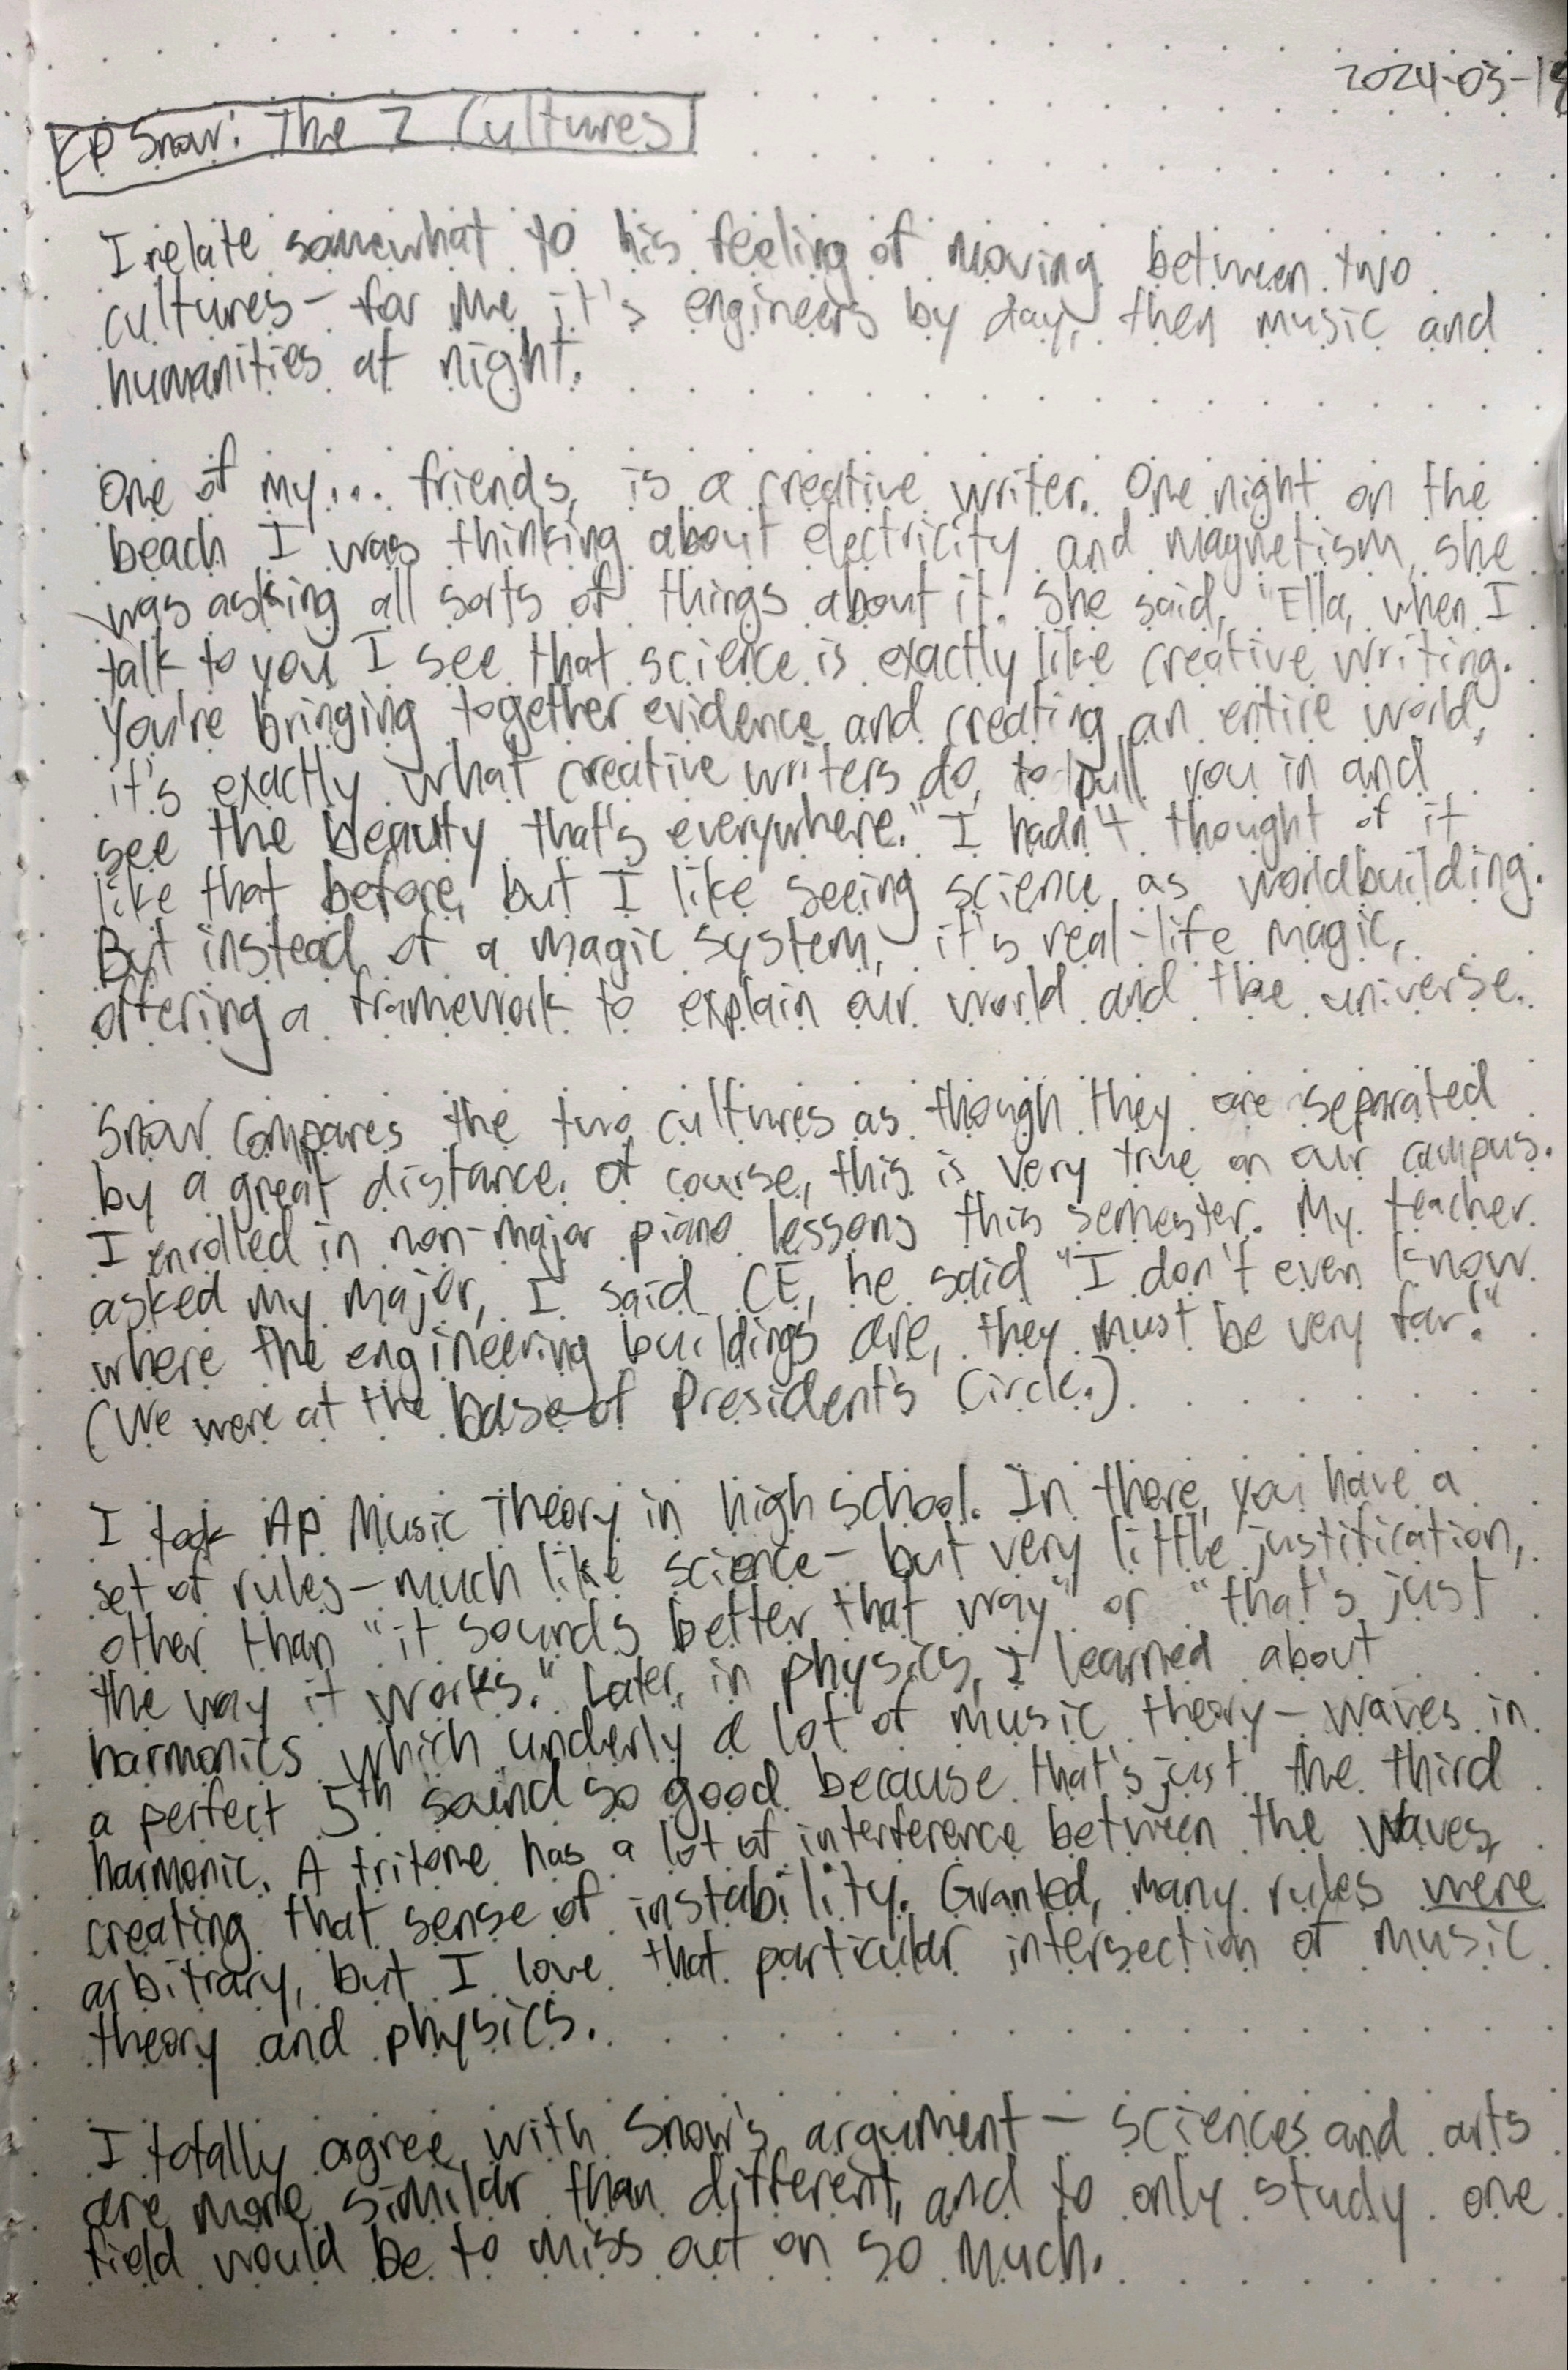 2024-03-18
CP Snow: The 2 Cultures
I relate somewhat to his feeling of moving between two
cultures – for me it's engineers by day, then music and
humanities at night.
One of my... friends, is a creative writer. One night on the
beach I was thinking about electricity and magnetism, she
was asking all sorts of things about it. She said, "Ella, when I
talk to you I see that science is exactly like creative writing.
You're bringing together evidence and creating an entire world,
it's exactly what creative writers do, to pull you in and
see the beauty that's everywhere." I hadn't thought of it
like that before, but I like seeing science as worldbuilding.
But instead of a magic system, it's real-life magic,
offering a framework to explain our world and the universe.
Snow compares the two cultures as though they are separated
by a great distance. Of course, this is very true on our campus.
I enrolled in non-major piano lessons this semester. My teacher
asked my major, I said CE, he said "I don't even know
where the engineering buildings are, they must be very far!"
(We were at the base of President's Circle.)
I took AP Music Theory in high school. In there, you have a
set of rules – much like science – but very little justification,
other than "it sounds better that way" or "that's just
the way it works." Later, in physics, I learned about
harmonics which underly a lot of music theory – waves in
a perfect 5th sound so good because that's just the third
harmonic. A tritone has a lot of interference between the waves,
creating that sense of instability. Granted, many rules were
arbitrary, but I love that particular intersection of music
theory and physics.
I totally agree with Snow's argument – sciences and arts
are more similar than different, and to only study one
field would be to miss out on so much.